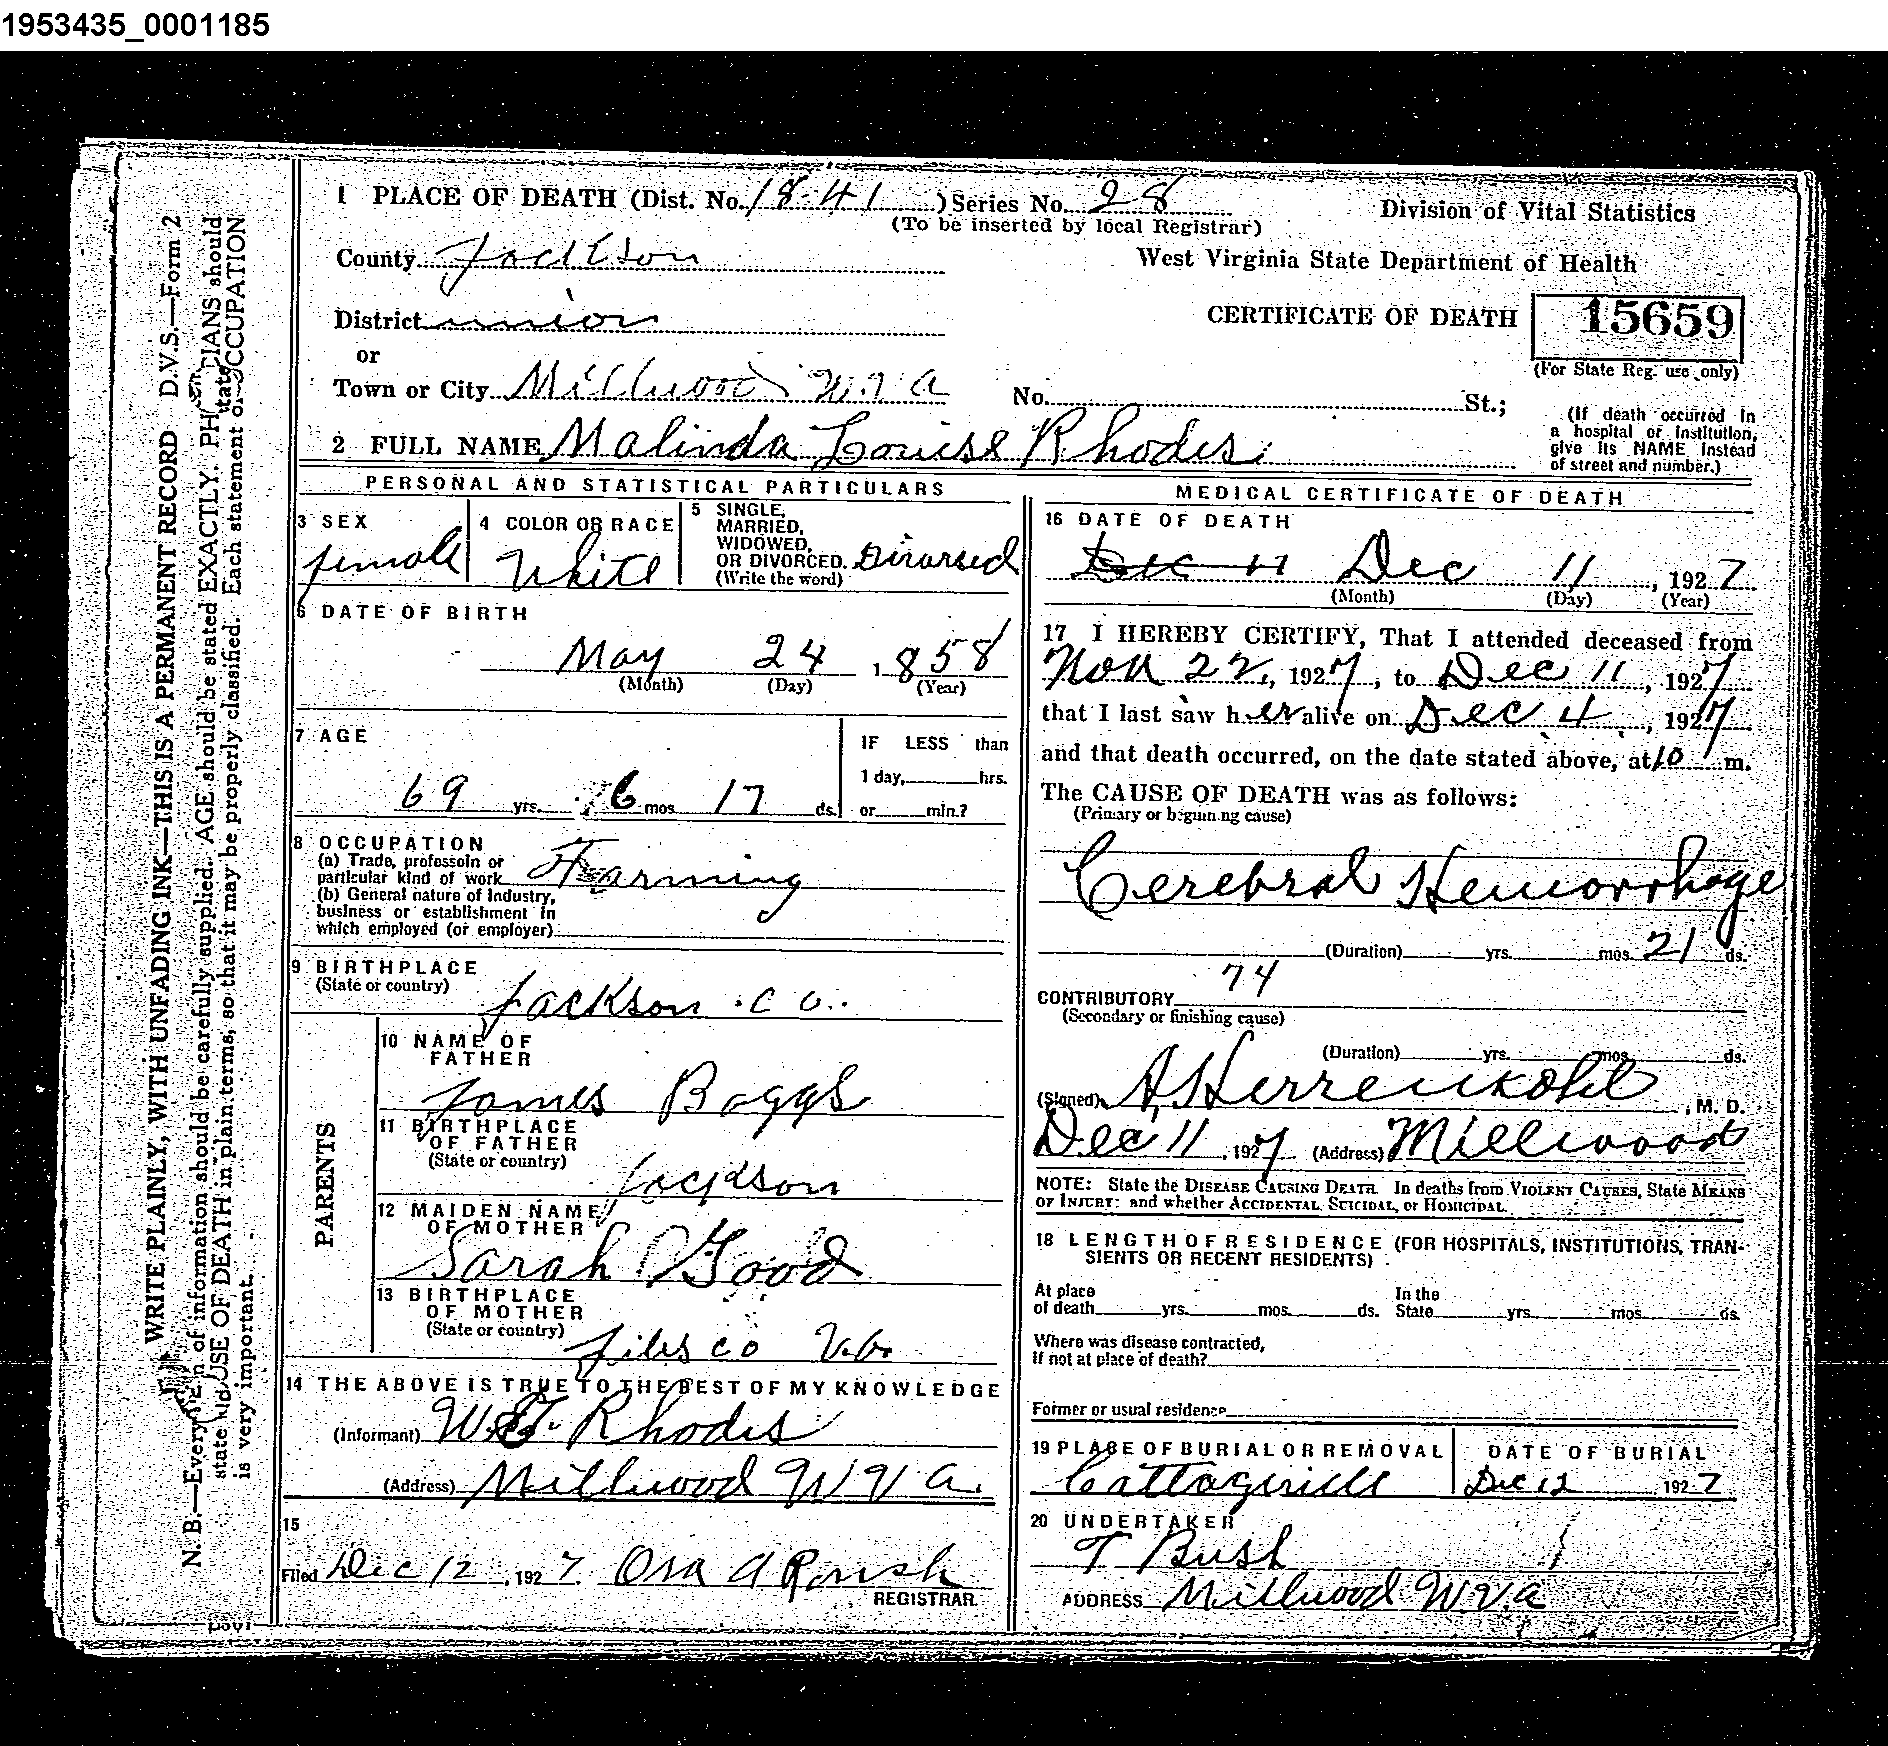 1953435_0001185
1 PLACE OF DEATH (Dist. No. 18-41 ) Series No. 28
(To be inserted by local Registrar)
Division of Vital Statistics
County Jackson
West Virginia State Department of Health
District union
CERTIFICATE OF DEATH 15659
(For State Reg. use only)
or
Town or City Millwood W. Va
No. St.;
(If death occurred in
a hospital or institution,
give its NAME instead
of street and number.)
2 FULL NAME Malinda Louise Rhodes
PERSONAL AND STATISTICAL PARTICULARS
3 SEX
female
4 COLOR OR RACE
White
5 SINGLE,
MARRIED,
WIDOWED,
OR DIVORCED.
(Write the word)
Divorsed
6 DATE OF BIRTH
May 24, 1858
(Month) (Day) (Year)
7 AGE
69 yrs. 6 mos 17 ds.
IF LESS than
1 day, hrs.
or min.?
8 OCCUPATION
(a) Trade, professoin or
particular kind of work Farming
(b) General nature of Industry,
business or establishment in
which employed (or employer)
9 BIRTHPLACE
(State or country)
Jackson Co.
PARENTS
10 NAME OF
FATHER
James Boggs
11 BIRTHPLACE
OF FATHER
(State or country)
Jackson
12 MAIDEN NAME
OF MOTHER
Sarah Good
13 BIRTHPLACE
OF MOTHER
(State or country)
co Va.
14 THE ABOVE IS TRUE TO THE BEST OF MY KNOWLEDGE
(Informant) Rhodes
(Address) Millwood W Va.
15
Filed Dec 12, 1927. Ora A Roush
REGISTRAR
MEDICAL CERTIFICATE OF DEATH
16 DATE OF DEATH
Dec 11 Dec 11, 1927
(Month) (Day) (Year)
17 I HEREBY CERTIFY, That I attended deceased from
Nov 22, 1927, to Dec 11, 1927
that I last saw her alive on Dec 4, 1927
and that death occurred, on the date stated above, at 10 m.
The CAUSE OF DEATH was as follows:
(Primary or beginning cause)
Cerebral Hemorrhage
(Duration) yrs. mos. 21 ds.
74
CONTRIBUTORY
(Secondary or finishing cause)
(Duration) yrs. mos. ds.
(Signed) A, Herrenkohl, M. D.
Dec 11, 1927 (Address) Millwood
NOTE: State the DISEASE CAUSING DEATH. In deaths from VIOLENT CAUSES, State MEANS
OF INJURY; and whether ACCIDENTAL, SUICIDAL, or HOMICIDAL.
18 LENGTH OF RESIDENCE (FOR HOSPITALS, INSTITUTIONS, TRAN-
SIENTS OR RECENT RESIDENTS)
At place
of death yrs. mos. ds.
In the
State yrs. mos. ds.
Where was disease contracted,
if not at place of death?
Former or usual residence
19 PLACE OF BURIAL OR REMOVAL
Cottageville
DATE OF BURIAL
Dec 12 1927
20 UNDERTAKER
T Bush
ADDRESS Millwood W.Va
WRITE PLAINLY, WITH UNFADING INK—THIS IS A PERMANENT RECORD D.V.S.—Form 2
N. B.—Every of information should be carefully supplied. AGE should be stated EXACTLY. should
state USE OF DEATH in plain terms, so that it may be properly classified. Each statement of OCCUPATION
is very important.